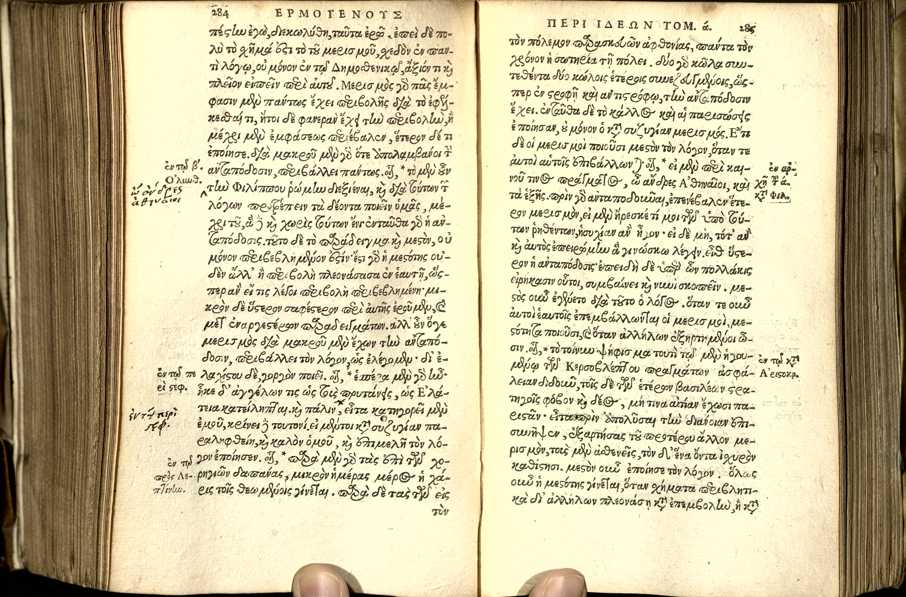 284 ΕΡΜΟΓΕΝΟΥΣ
ἐγὼ, διεκωλύθη, ταῦτα ἐρῶ. ἐπεὶ δὲ πο-
λὺ τὸ χῆμα ὅτι τὸ τοῦ μερισμοῦ, χεδὸν ἐν παν-
τὶ λόγῳ, οὐ μόνον ἐν τῷ Δημοσθενικῷ, ἄξιόν τι καὶ
πλεῖον εἰπεῖν περὶ αὐτοῦ. Μερισμὸς γὸ πᾶς ἔμ-
φασιν μὲν πάντως ἔχει περιβολῆς διὰ τὸ ἐφέλ-
κεσθαί τι, ἤτοι δὲ φανερὰν ἔχει τὴν περιβολὴν, ἢ
μέχρι μὲν ἐμφάσεως περιέβαλεν, ἕτερον δέ τι
ἐποίησε. διὰ μακροῦ μὲν γὸ ὅτε ὑπολαμβάνοι τ
ἀνταπόδοσιν, περιβάλλει πάντως. οἷ, * τὸ μὲν οὖν
τὴν Φιλίππου ῥώμην διεξιέναι, καὶ διὰ τούτων τ
λόγων προτρέπειν τὰ δέοντα ποιεῖν ὑμᾶς, μέ-
χρι τού, καὶ χωρὶς τούτων ἦν ἐνταῦθα γὸ ἡ αν-
ταπόδοσις. τοῦτο δὲ τὸ παράδειγμα καὶ μεστὸν, οὐ
μόνον περιβεβλημένον ὅτιν· ἔτι γὸ ἡ μεστότης οὐ-
δὲν ἄλλ' ἢ περιβολὴ πλεονάσασα ἐν ἑαυτῇ, ὥσ-
περ αν εἴ τις λέγοι περιβολὴ περιβεβλημένη· μι-
κρὸν δὲ ὕστερον σαφέστερον περὶ αὐτῆς ἐροῦμεν, καὶ
μετ' ἐναργεστέρων παραδειγμάτων. ἀλλ' οὖν ὅγε
μερισμὸς διὰ μακροῦ μὲν ἔχων τὴν ἀνταπό-
δοσιν, περιβάλλει τὸν λόγον, ὡς ἐλέγομεν· δι' ἐ-
λαχίστου δὲ, γοργὸν ποιεῖ. οἷ, * ἑσπέρα μὲν γὸ ἦν·
ἧκε δ' ἀγγέλων τις ὡς τοὺς πρυτάνεις, ὡς Ἐλά-
τεια κατείληπται. καὶ πάλιν, * εἶτα κατηγορεῖ μὲν
ἐμοῦ, κρίνει τουτονί. εἰ μέντοι κατὰ συζυγίαν πα-
ραληφθείη, καὶ καλὸν ὁμοῦ, καὶ ἐπιμελῆ τὸν λό-
γον ἐποίησεν. οἷ, * παρὰ μὲν γὸ τὰς ἐπὶ τῶν χο-
ρηγιῶν δαπάνας, μικρὸν ἡμέρας μέρος ἡ χά-
ρις τοῖς θεωμένοις γίνεται. παρὰ δὲ τὰς τῶν εἰς
τὸν
ἐν τῷ β'.
Ὀλυνθ.
ἄνδρες
ἀθηναῖοι
ἐν τῷ πε
ρὶ στεφ.
ἐν τῷ περὶ
στεφ.
ἐν τῷ
πρὸς Λε-
πτίνην.
ΠΕΡΙ ΙΔΕΩΝ ΤΟΜ. ά. 285
τὸν πόλεμον παρασκευῶν ἀφθονίας, πάντα τὸν
χρόνον ἡ σωτηρία τῇ πόλει. δύο γὸ κῶλα συν-
τεθέντα δύο κώλοις ἑτέροις συνεζευγμένοις, ὥσ-
περ ἐν στροφῇ καὶ ἀντιστρόφῳ, τὴν ἀνταπόδοσιν
ἔχει. ἐνταῦθα δὲ τὸ κάλλος καὶ αἱ παρισώσεις
ἐποίησαν, οὐ μόνον ὁ κατὰ συζυγίαν μερισμός. Ἔτι
δὲ οἱ μερισμοὶ ποιοῦσι μεστὸν τὸν λόγον, ὅταν τε
αὐτοὶ αὑτοῖς ἐπιβάλλωνται· οἷ, * εἰ μὲν περὶ και-
νοῦ τινος πράγματος, ὦ ἄνδρες Ἀθηναῖοι, καὶ
τὰ ἑξῆς. πρὶν γὸ ἀνταποδοῦναι, ἐπενέβαλεν ἕτε-
ρον μερισμὸν, εἰ μὲν ἤρεσκέ τί μοι τῶν ὑπὸ τού-
των ῥηθέντων, ἡσυχίαν ἂν ἦγον· εἰ δὲ μὴ, τότ' αν
καὶ αὐτὸς ἐπειρώμην ἃ γινώσκω λέγειν. εἶθ' ὕστε-
ρον ἡ ἀνταπόδοσις· ἐπειδὴ δὲ ὑπὲρ ὧν πολλάκις
εἰρήκασιν οὗτοι, συμβαίνει καὶ νυνὶ σκοπεῖν. με-
στὸς οὖν ἐγένετο διὰ τοῦτο ὁ λόγος. ὅταν τε οὖν
αὐτοὶ ἑαυτοῖς ἐπεμβάλλωνται οἱ μερισμοὶ, με-
στότητα ποιοῦσι, καὶ ὅταν ἀλλήλων ἐξηρτημένοι ὦ-
σιν. οἷ, * τὸ τοίνυν ψήφισμα τουτὶ τῷ μὲν ἡγου-
μένῳ τῶν Κερσοβλέπτου πραγμάτων ἀσφά-
λειαν δίδωσι, τοῖς δὲ τῶν ἑτέρων βασιλέων στρα-
τηγοῖς φόβον καὶ δέος, μή τινα αἰτίαν ἔχωσι πα-
ριστᾶν· εἶτα πρὶν ἀπολῦσαι τὴν διάνοιαν ἐπι-
συνῆψεν, ἐξαρτήσας τοῦ προτέρου ἄλλον με-
ρισμὸν, τοὺς μὲν ἀσθενεῖς, τὸν δ' ἕνα ὄντα ἰσχυρὸν
καθίστησι. μεστὸν οὖν ἐποίησε τὸν λόγον. ὅλως
οὖν ἡ μεστότης γίνεται, ὅταν σχήματα περιβλητι-
κὰ δι' ἀλλήλων πλεονάσῃ κατ' ἐπεμβολὴν, ἢ κατ'
ἐν ἀρ-
χῇ τ ά.
Φιλ.
ἐν τῷ κατ'
Ἀριστοκρ.